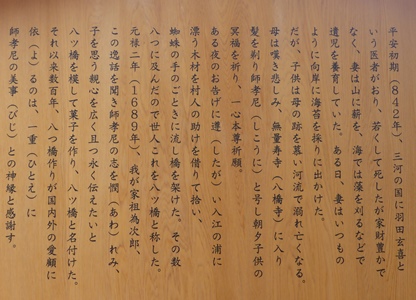 平安初期（８４２年）、三河の国に羽田玄喜と
いう医者がおり、若くして死したが家財豊かで
なく、妻は山に薪を、海では藻を刈るなどで
遺児を養育していた。ある日、妻はいつもの
ように向岸に海苔を採りに出かけた。
だが、子供は母の跡を慕い河流で溺れ亡くなる。
母は嘆き悲しみ、無量寿寺（八橋寺）に入り
髪を剃り師孝尼（しこうに）と号し朝夕子供の
冥福を祈り、一心本尊祈願。
ある夜のお告げに遵（したが）い入江の浦に
漂う木材を村人の助けを借りて拾い、
蜘蛛の手のごときに流し橋を架けた。その数
八つに及んだので世人これを八ツ橋と称した。
元禄二年（１６８９年）、我が家祖為次郎、
この逸話を聞き師孝尼の志を憫（あわ）れみ、
子を思う親心を広く且つ永く伝えたいと
八ツ橋を模して菓子を作り、八ツ橋と名付けた。
それ以来数百年、八つ橋作りが国内外の愛顧に
依（よ）るのは、一重（ひとえ）に
師孝尼の美事（びじ）との神縁と感謝す。